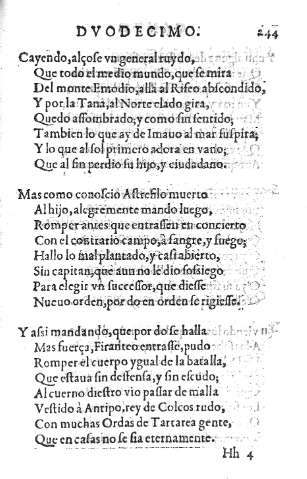 DVODECIMO. 244
Cayendo, alçose vn general ruydo,
Que todo el medio mundo, que se mira
Del monte Emodio, allà al Rifeo abscondido,
Y por la Tana, al Norte elado gira,
Quedo assombrado, y como sin sentido;
Tambien lo que ay de Imauo al mar suspira;
Y lo que al sol primero adora en vano;
Que al fin perdio su hijo, y ciudadano.
Mas como conoscio Astrefilo muerto
Al hijo, alegremente mando luego,
Romper antes que entrassen en concierto
Con el contrario campo, à sangre, y fuego;
Hallo lo mal plantado, y casi abierto,
Sin capitan, que aun no le dio sossiego
Para elegir vn successor, que diesse
Nueuo orden, por do en orden se rigiesse.
Y assi mandando, que por do se halla
Mas fuerça, Firanteo entrasse, pudo
Romper el cuerpo ygual de la batalla,
Que estaua sin defensa, y sin escudo;
Al cuerno diestro vio passar de malla
Vestido à Antipo, rey de Colcos rudo,
Con muchas Ordas de Tartarea gente,
Que en casas no se fia eternamente.
Hh 4